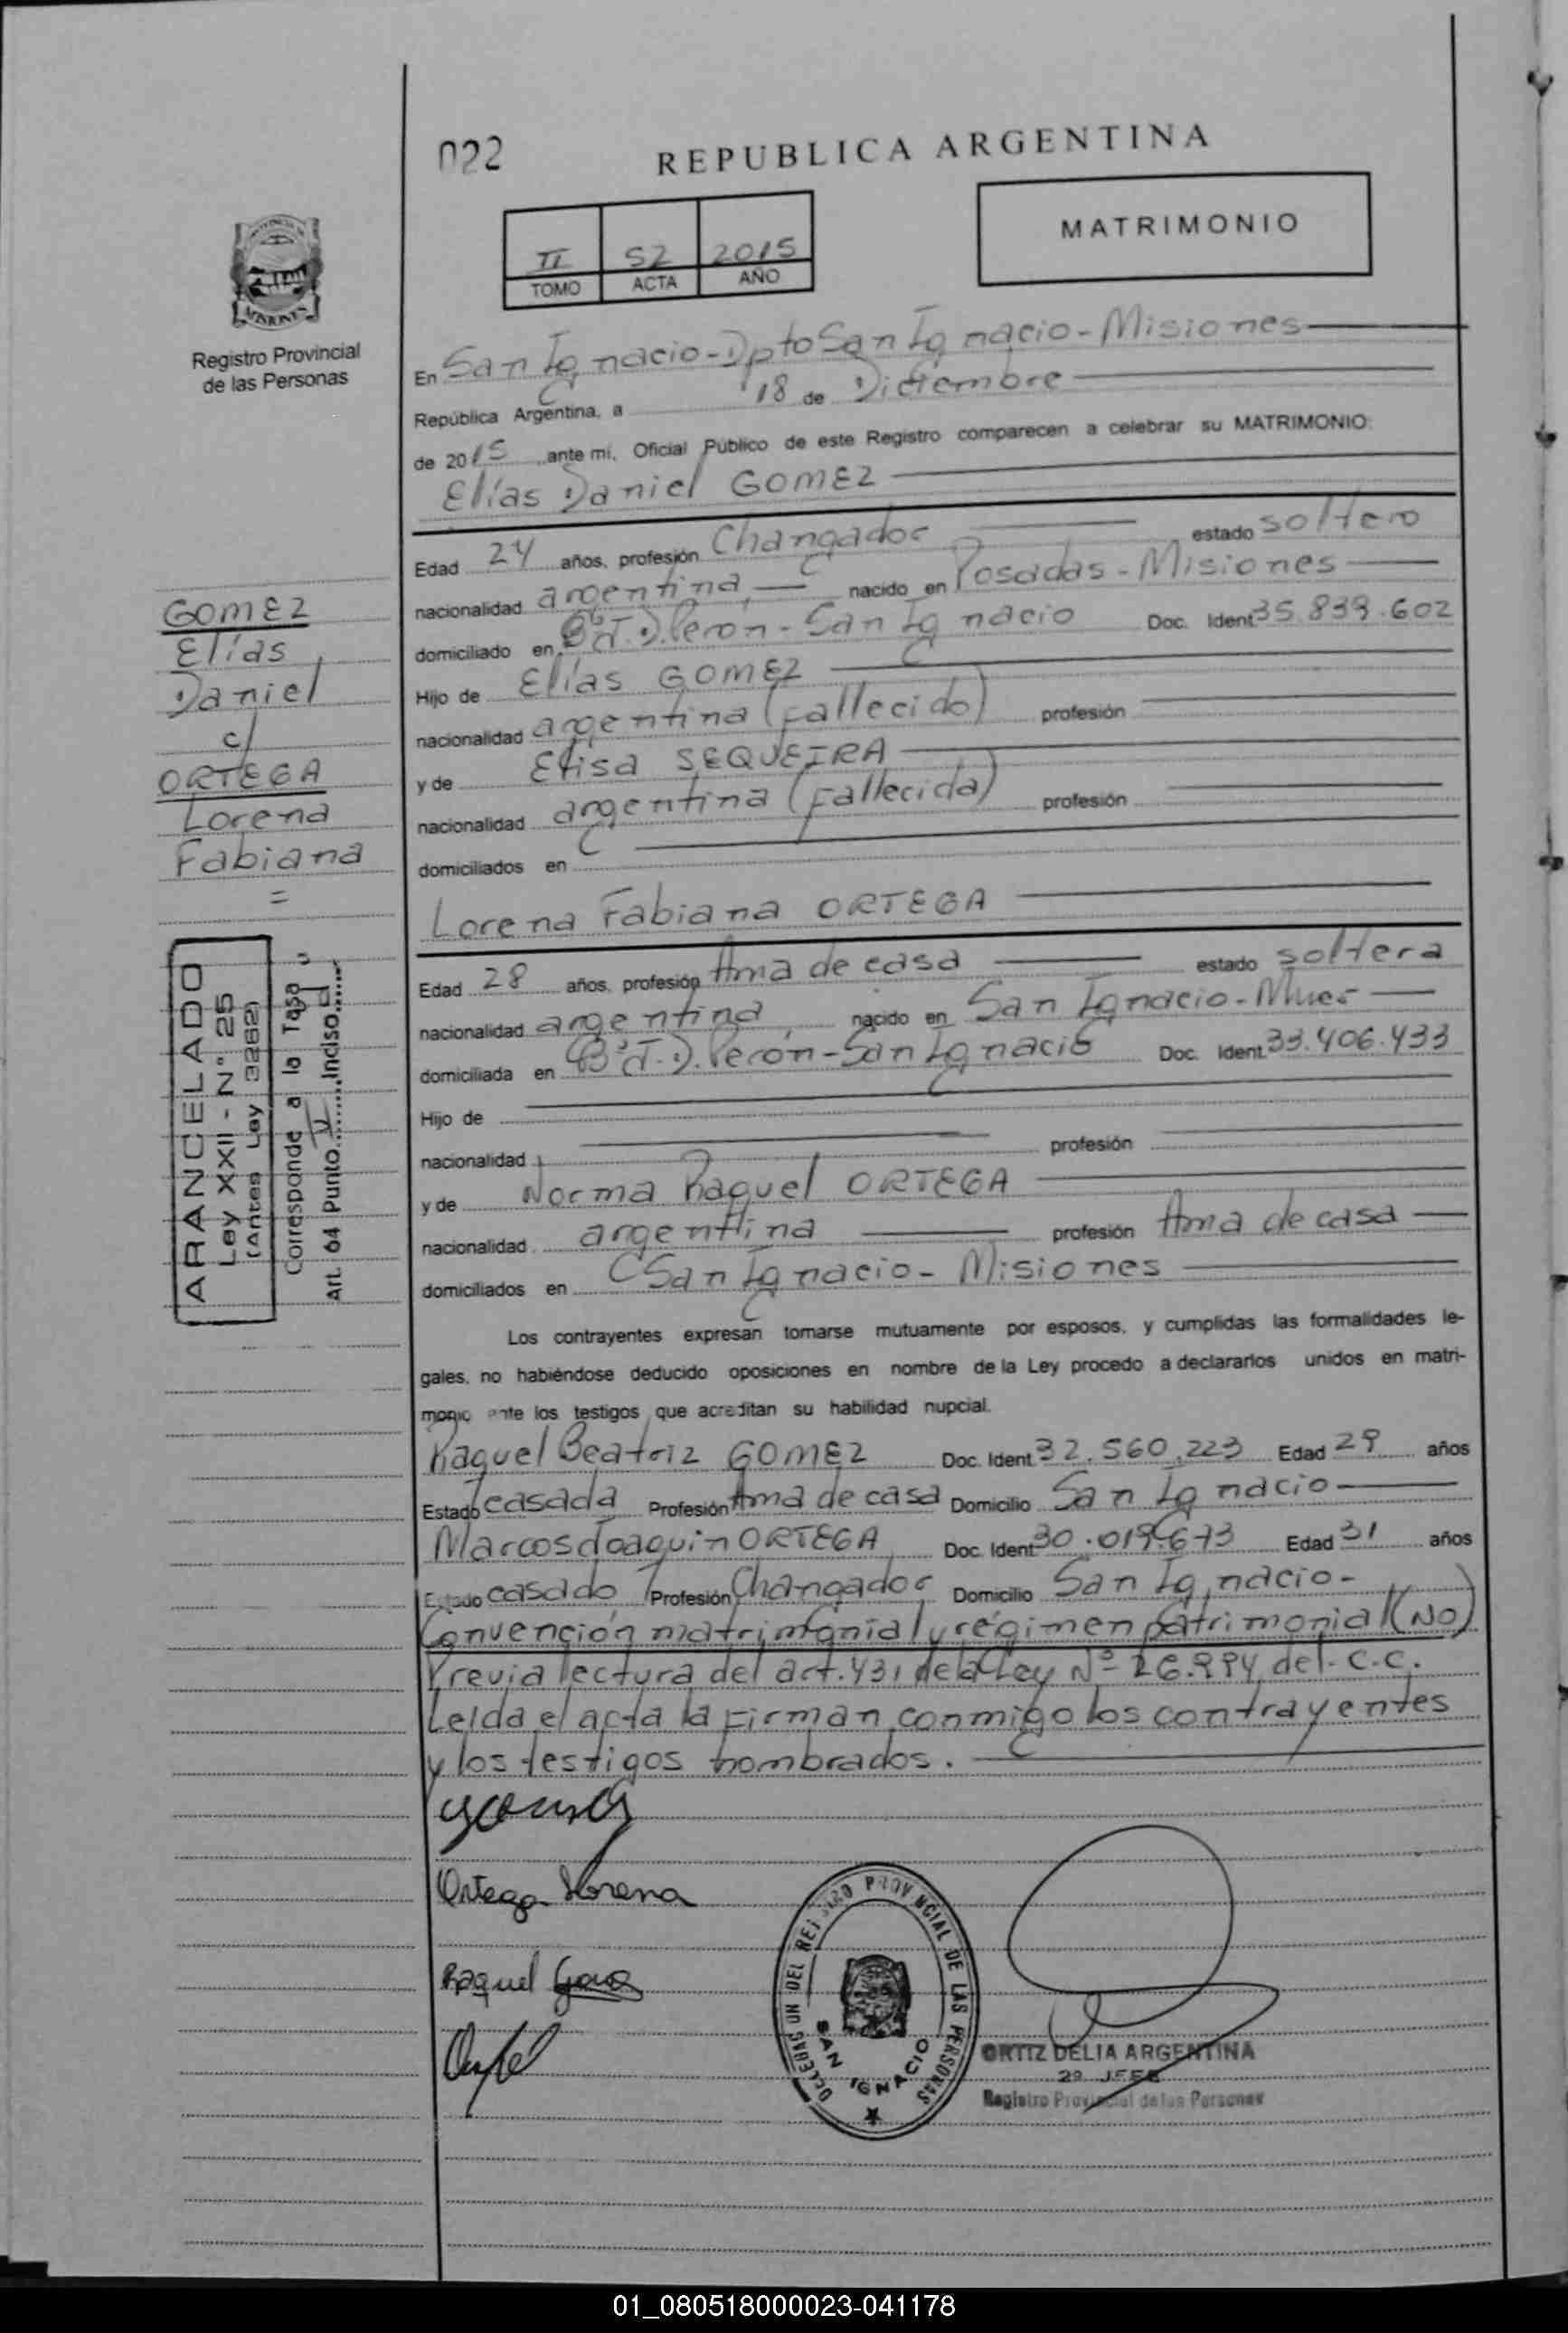 022
REPUBLICA ARGENTINA
MATRIMONIO
II 52 2015
TOMO ACTA AÑO
MISIONES
Registro Provincial
de las Personas
En San Ignacio-Dpto San Ignacio-Misiones
República Argentina, a 18 de Diciembre
de 2015 ante mi, Oficial Público de este Registro comparecen a celebrar su MATRIMONIO:
Elías Daniel GOMEZ
Edad 24 años, profesión Changador estado soltero
nacionalidad argentina nacido en Posadas-Misiones
domiciliado en Bº J.D.Perón-San Ignacio Doc. Ident 35.839.602
Hijo de Elías GOMEZ
nacionalidad argentina (fallecido) profesión
y de Elisa SEQUEIRA
nacionalidad argentina (fallecida) profesión
domiciliados en
Lorena Fabiana ORTEGA
Edad 28 años, profesión Ama de casa estado soltera
nacionalidad argentina nacido en San Ignacio-Mnes
domiciliada en Bº J.D.Perón-San Ignacio Doc. Ident 33.406.433
Hijo de
nacionalidad profesión
y de Norma Raquel ORTEGA
nacionalidad argentina profesión Ama de casa
domiciliados en San Ignacio-Misiones
Los contrayentes expresan tomarse mutuamente por esposos, y cumplidas las formalidades le-
gales, no habiéndose deducido oposiciones en nombre de la Ley procedo a declararlos unidos en matri-
monio ante los testigos que acreditan su habilidad nupcial.
Raquel Beatriz GOMEZ Doc. Ident 32.560.223 Edad 29 años
Estado casada Profesión Ama de casa Domicilio San Ignacio
Marcos Joaquin ORTEGA Doc. Ident 30.019.673 Edad 31 años
Estado casado Profesión Changador Domicilio San Ignacio-
Convención matrimonial y régimen patrimonial (NO)
Previa lectura del art.431 de la Ley Nº 26.994 del C.C.
Leída el acta la firman conmigo los contrayentes
y los testigos nombrados.
GOMEZ
Elías
Daniel
c/
ORTEGA
Lorena
Fabiana
=
ARANCELADO
Ley XXII - Nº 25
(Antes Ley 3262)
Corresponde a la Tasa
Art. 64 Punto V Inciso d
Ortega Lorena
Raquel
DELEGACION DEL REGISTRO PROVINCIAL DE LAS PERSONAS
SAN IGNACIO
ORTIZ DELIA ARGENTINA
2º JEFE
Registro Provincial de las Personas
01_080518000023-041178